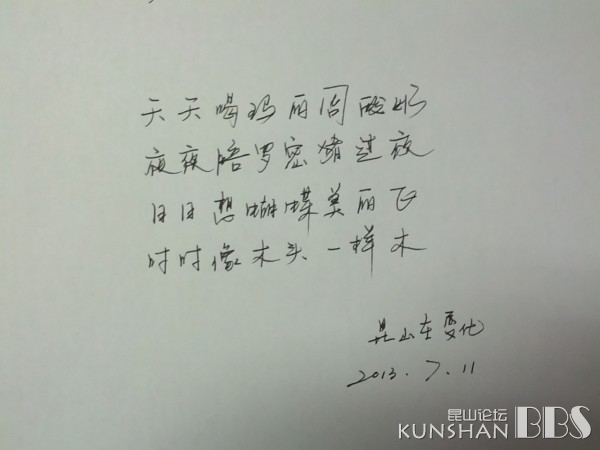 天天喝玛丽固酸奶
夜夜陪罗密猪过夜
日日想蝴蝶美丽飞
时时像木头一样木
昆山在变化
2013.7.11
昆山论坛
KUNSHAN BBS